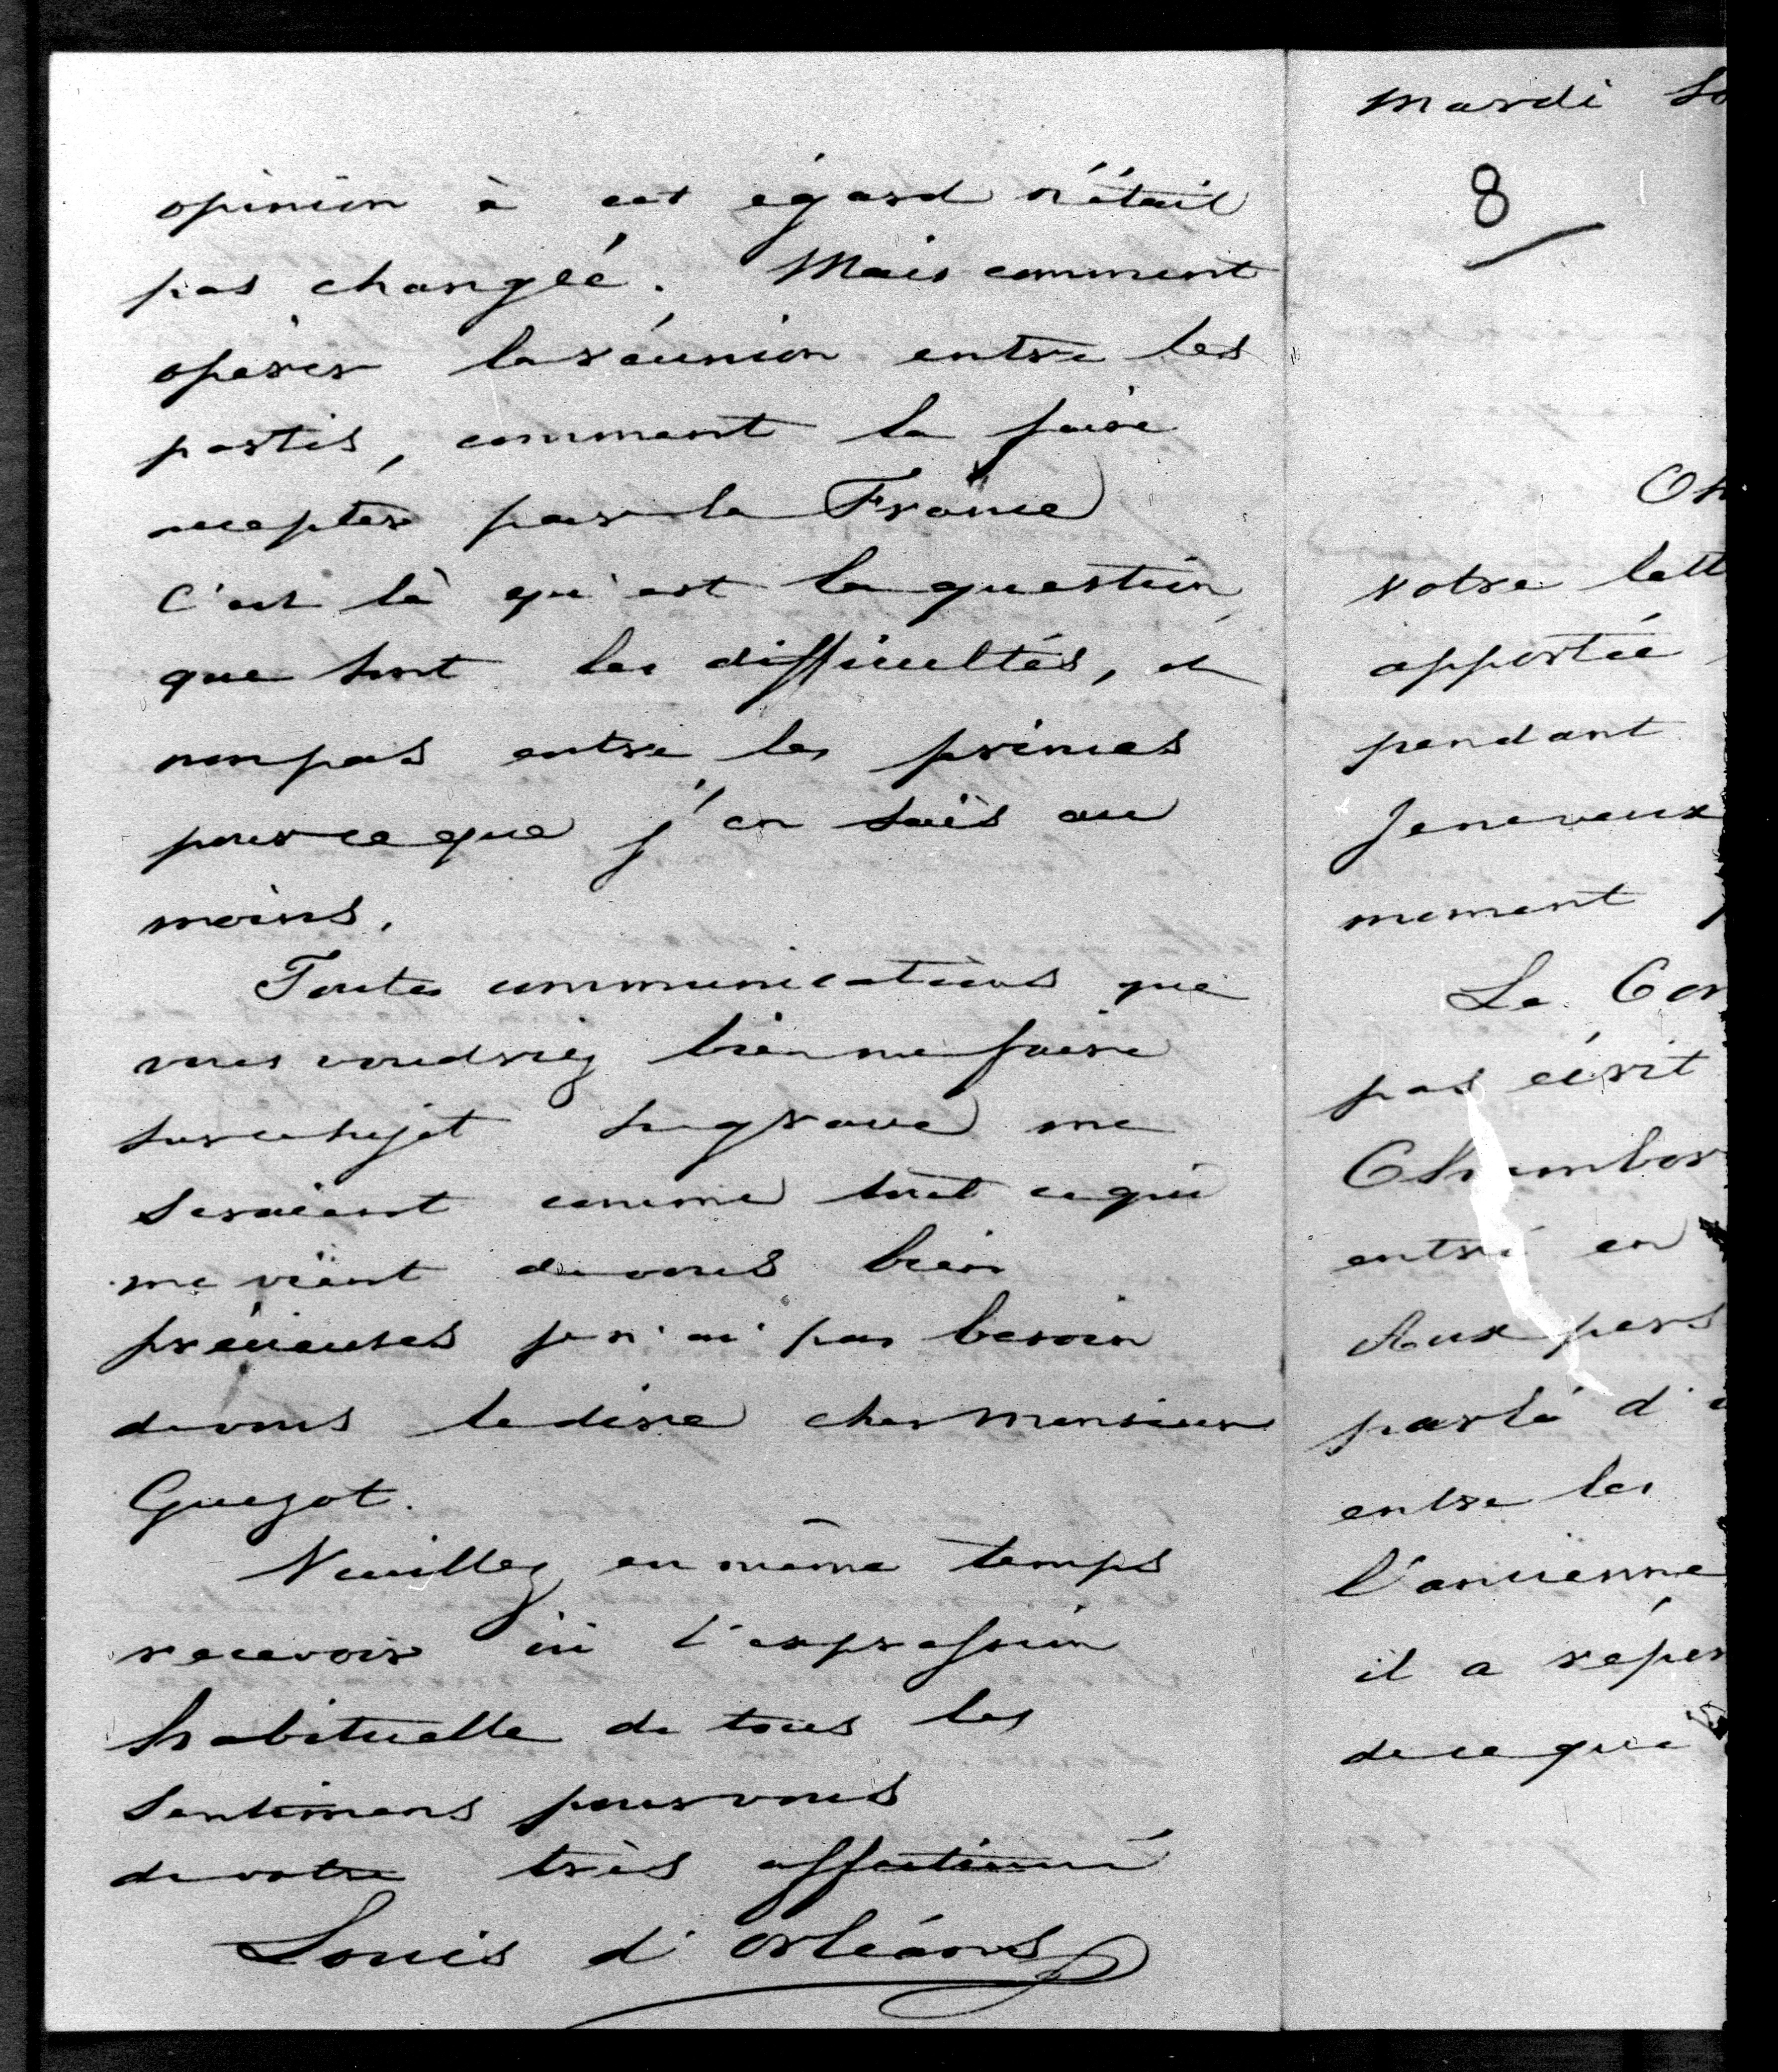 opinion à cet égard n'était
pas changée. Mais comment
opérer la réunion entre les
partis, comment la faire
accepter par la France
c'est là qu'est la question,
que sont les difficultés, et
non pas entre les princes
pour ce que j'en sais au
moins.
Toutes communications que
vous voudriez bien me faire
sur ce sujet si grave me
seraient comme tout ce qui
me vient de vous bien
précieuses je n'ai pas besoin
de vous le dire cher Monsieur
Guizot.
Veuillez en même temps
recevoir ici l'expression
habituelle de tous les
sentimens pour vous
de votre très affectionné
Louis d'Orléans
mardi so
8
votre lett
apportée
pendant
Je ne veux
moment
Le Com
pas écrit
Chambor
entré en
Aux pers
parlé d'u
entre les
l'ancienne
il a répon
de ce que